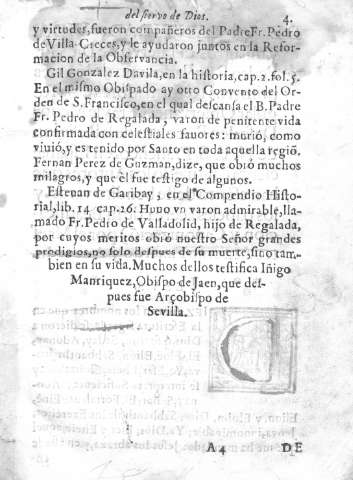 del siervo de Dios. 4.
y virtudes, fueron compañeros del Padre Fr. Pedro
de Villa-Creces, y le ayudaron juntos en la Refor-
macion de la Observancia.
Gil Gonzalez Davila, en la historia, cap. 2. fol. 5.
En el mismo Obispado ay otro Convento del Or-
den de S. Francisco, en el qual descansa el B. Padre
Fr. Pedro de Regalada, varon de penitente vida
confirmada con celestiales fauores: murió, como
viuió, y es tenido por Santo en toda aquella regiõ.
Fernan Perez de Guzman, dize, que obió muchos
milagros, y que èl fue testigo de algunos.
Esteuan de Garibay, en el Compendio Histo-
rial, lib. 14 cap. 26. Huuo vn varon admirable, lla-
mado Fr. Pedro de Valladolid, hijo de Regalada,
por cuyos meritos obió nuestro Señor grandes
prodigios, no solo despues de su muerte, sino tam-
bien en su vida. Muchos dellos testifica Iñigo
Manriquez, Obispo de Jaen, que des-
pues fue Arçobispo de
Sevilla.
A4 DE